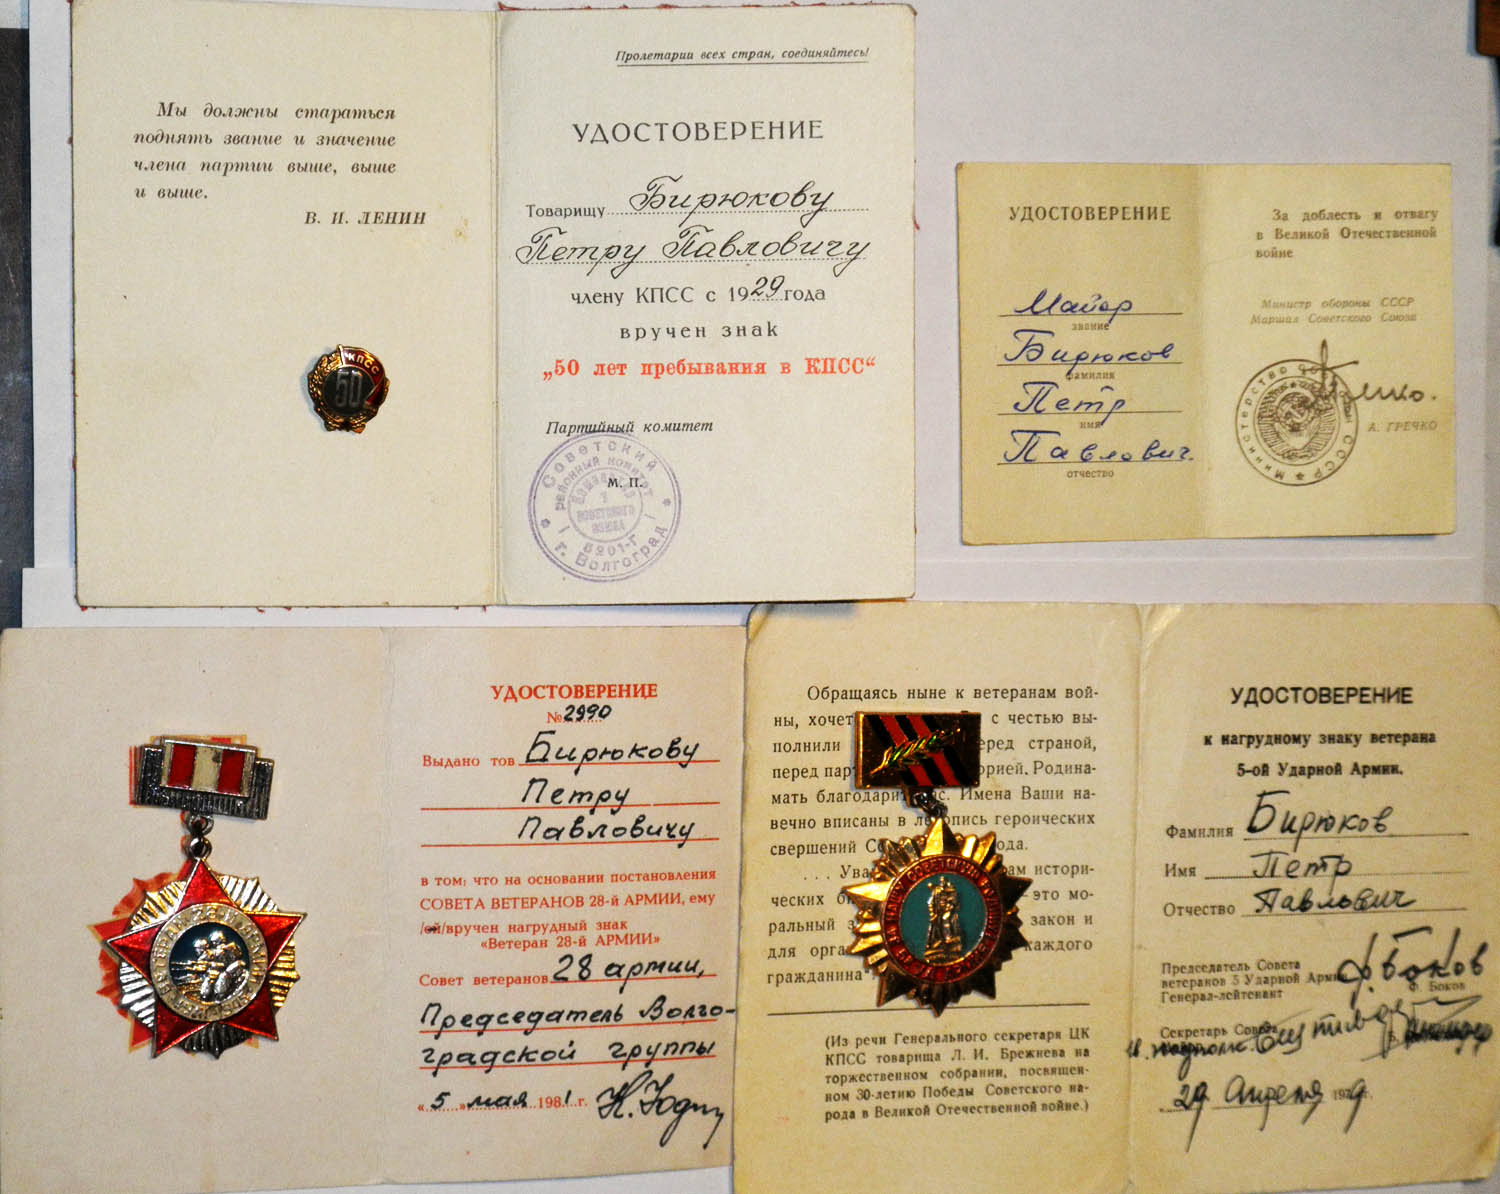 Мы должны стараться
поднять звание и значение
члена партии выше, выше
и выше.
В. И. ЛЕНИН
КПСС
50
Пролетарии всех стран, соединяйтесь!
УДОСТОВЕРЕНИЕ
Товарищу Бирюкову
Петру Павловичу
члену КПСС с 1929 года
вручен знак
„50 лет пребывания в КПСС“
Партийный комитет
М. П.
Советский
районный комитет
Советского
Союза
г. Волгоград
УДОСТОВЕРЕНИЕ
Майор
звание
Бирюков
фамилия
Петр
имя
Павлович.
отчество
За доблесть и отвагу
в Великой Отечественной
войне
Министр обороны СССР
Маршал Советского Союза
Министерство обороны СССР
А. ГРЕЧКО
УДОСТОВЕРЕНИЕ
№ 2990
Выдано тов Бирюкову
Петру
Павловичу
в том: что на основании постановления
СОВЕТА ВЕТЕРАНОВ 28-й АРМИИ, ему
/ей/вручен нагрудный знак
«Ветеран 28-й АРМИИ»
Совет ветеранов 28 армии,
Председатель Волго-
градской группы
«5» мая 1981 г.
Обращаясь ныне к ветеранам вой-
ны, хочет с честью вы-
полнили еред страной,
перед пар орией. Родина-
мать благодари с. Имена Ваши на-
вечно вписаны в ле опись героических
свершений С ода.
. . . Ува ам истори-
ческих б это мо-
ральный з закон и
для орга каждого
гражданина“
(Из речи Генерального секретаря ЦК
КПСС товарища Л. И. Брежнева на
торжественном собрании, посвящен-
ном 30-летию Победы Советского на-
рода в Великой Отечественной войне.)
УДОСТОВЕРЕНИЕ
к нагрудному знаку ветерана
5-ой Ударной Армии.
Фамилия Бирюков
Имя Петр
Отчество Павлович
Председатель Совета
ветеранов 5 Ударной Армии
Генерал-лейтенант
Ф. Боков
Ф. Боков
Секретарь Совета
29 Апреля 1979 г.